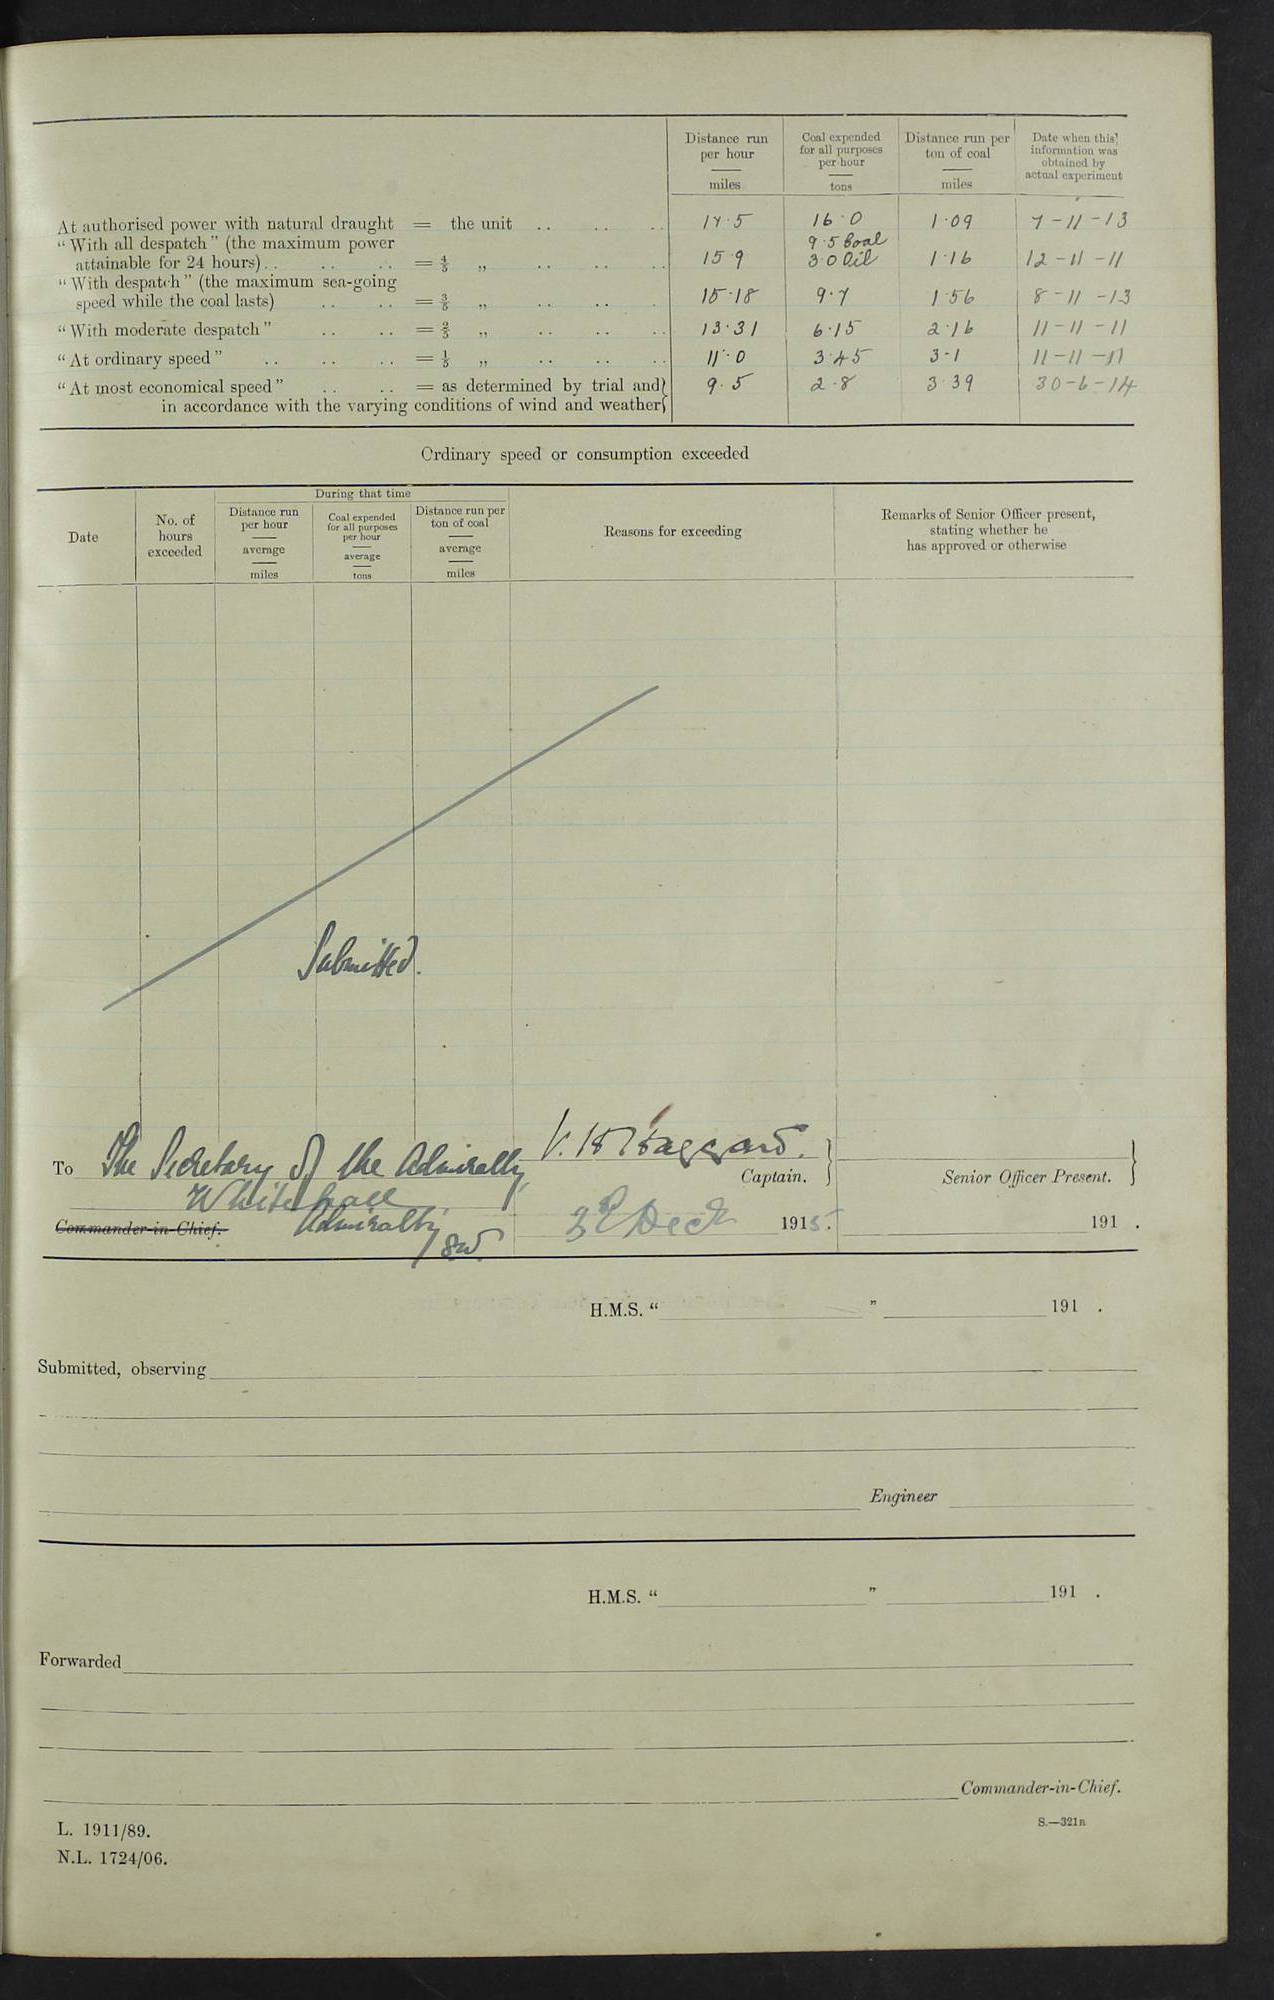 Distance run per hour — miles
Coal expended for all purposes per hour — tons
Distance run per ton of coal — miles
Date when this information was obtained by actual experiment
At authorised power with natural draught = the unit .. .. .. 17·5 16·0 1·09 7-11-13
"With all despatch" (the maximum power 9·5 Coal
attainable for 24 hours) .. .. .. = 4/5 „ .. .. .. 15·9 3·0 Oil 1·16 12-11-11
"With despatch" (the maximum sea-going
speed while the coal lasts) .. .. = 3/5 „ .. .. . 15·18 9·7 1·56 8-11-13
"With moderate despatch" .. .. = 2/5 „ .. .. .. 13·31 6·15 2·16 11-11-11
"At ordinary speed" .. .. .. = 1/5 „ .. .. .. 11·0 3·45 3·1 11-11-11
"At most economical speed" .. .. = as determined by trial and} 9·5 2·8 3·39 30-6-14
in accordance with the varying conditions of wind and weather}
Ordinary speed or consumption exceeded
Date
No. of hours exceeded
During that time
Distance run per hour — average — miles
Coal expended for all purposes per hour — average — tons
Distance run per ton of coal — average — miles
Reasons for exceeding
Remarks of Senior Officer present, stating whether he has approved or otherwise
Submitted.
To The Secretary of the Admiralty V. H. Haggard.
Whitehall Captain. } Senior Officer Present. }
Commander-in-Chief. Admiralty Dec 1915. 191 .
S.W.
H.M.S. " " 191 .
Submitted, observing
Engineer
H.M.S. " " 191 .
Forwarded
Commander-in-Chief.
L. 1911/89. S.—321B
N.L. 1724/06.